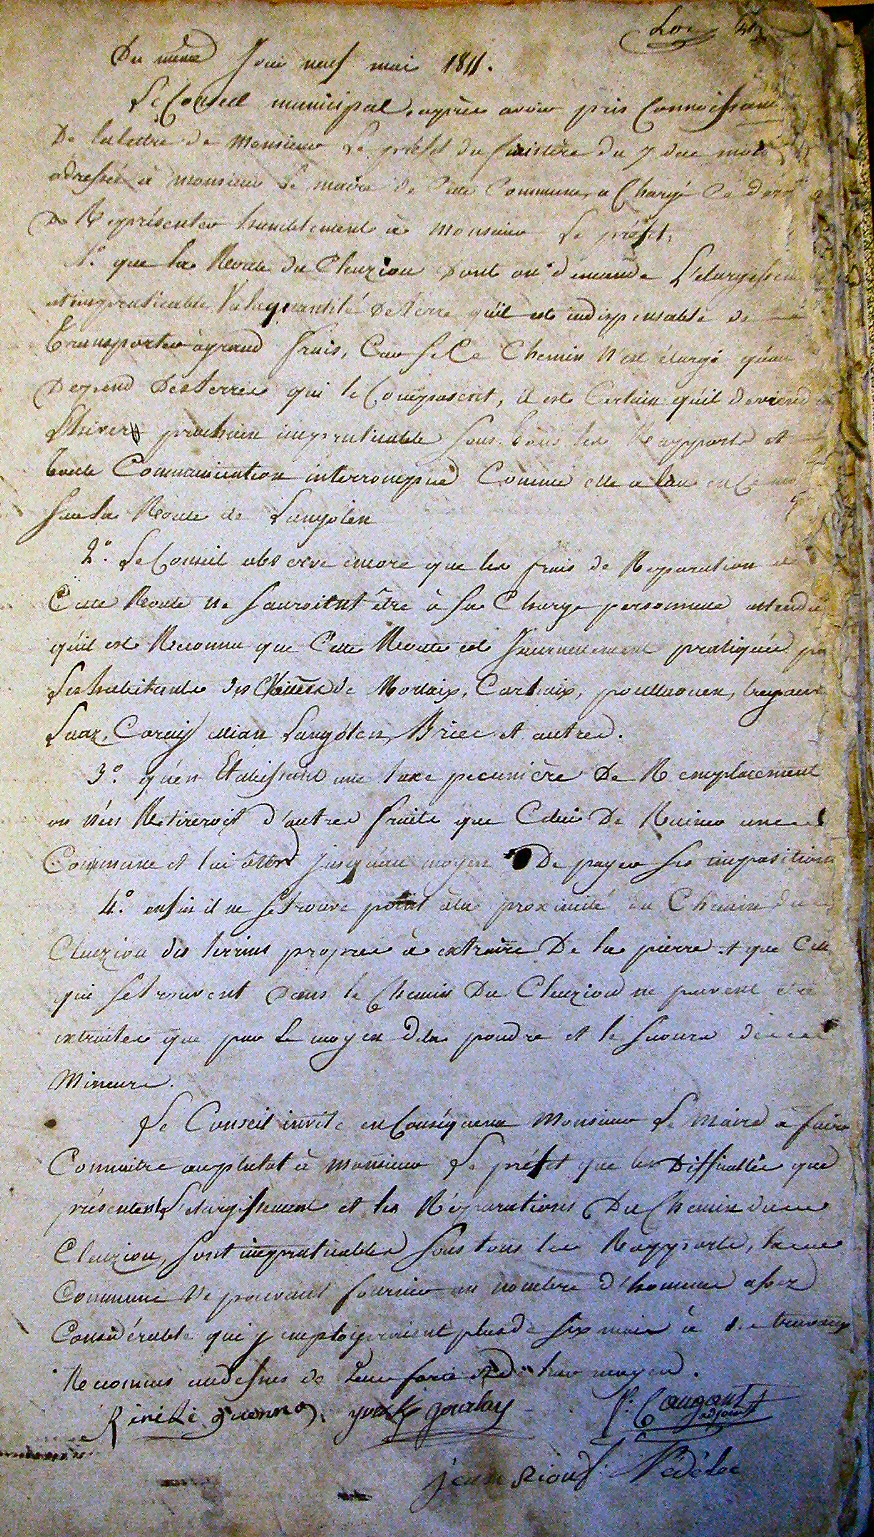 Du même Jour neuf mai 1811.
Le Conseil municipal, après avoir pris Connoissance
De la lettre de Monsieur Le préfet du finistère du 7 due mois
adressée à Monsieur le maire de Cette Commune, a Chargé Ce
De Représenter humblement à Monsieur Le préfet,
1.° que la Route du Cluziou dont on demande L'elargissement
est impraticable Vu la quantité De terre qu'il est indispensable de
transporter à grand frais, Car si Ce Chemin n'est élargi qu'au
Depend Des terres qui le Composent, il est Certain qu'il deviendra
L'hiver prochain impraticable sous tous les Rapports et
toute Communication interrompue Comme elle a lieu en Ce
sur la Route de Langolen
2.° Le Conseil observe encore que les frais de Reparation de
Cette Route ne sauroient être à sa Charge personnelle attendu
qu'il est Reconnu que Cette Route est Journellement pratiquée par
Les habitants des Villes de Morlaix, Carhaix, poullaouen,
Laz, Coray, Langolen, Briec et autres.
3.° qu'en Etablissant une taxe pecunière De Remplacement
on n'en Retireroit d'autres fruits que Celui De Ruiner une
Commune et lui ôter Jusqu'au moyen De payer ses impositions
4.° enfin il ne se trouve point à la proximité du Chemin du
Cluziou des terrins propres à extraire De la pierre et que Celles
qui se trouvent Dans le Chemin Du Cluziou ne peuvent être
extraites que par Le moyen De la poudre et le secours des
Mineurs.
Le Conseil invite en Conséquence Monsieur Le Maire à faire
Connaitre au plutot à Monsieur Le préfet que les Difficultés que
présentent L'elargissement et les Réparations Du Chemin du
Cluziou, sont impraticables sous tous les Rapports, la
Commune ne pouvant fournir un nombre d'hommes assez
Considérable qui y employeroient plus de six mois à des travaux
Reconnus au dessus de Leur force et de leur moyen.
René Le guenno. yves gourlay P. Caugant adjoint
jean Riou Nédélec